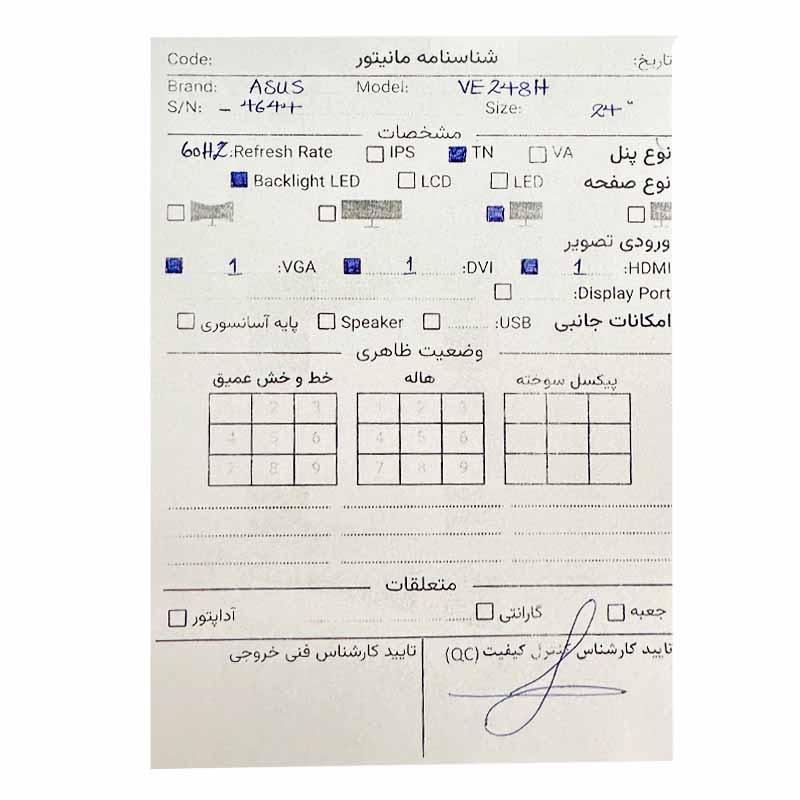 Code: شناسنامه مانیتور تاریخ:
Brand: ASUS Model: VE248H
S/N: - 4644 Size: 24"
مشخصات
نوع پنل VA TN IPS Refresh Rate: 60HZ
نوع صفحه LED LCD Backlight LED
ورودی تصویر
HDMI: 1 DVI: 1 VGA: 1
Display Port:
امکانات جانبی USB: Speaker پایه آسانسوری
وضعیت ظاهری
پیکسل سوخته هاله خط و خش عمیق
1 2 3 1 2 3
4 5 6 4 5 6
7 8 9 7 8 9
متعلقات
جعبه گارانتی آداپتور
تایید کارشناس کنترل کیفیت (QC) تایید کارشناس فنی خروجی